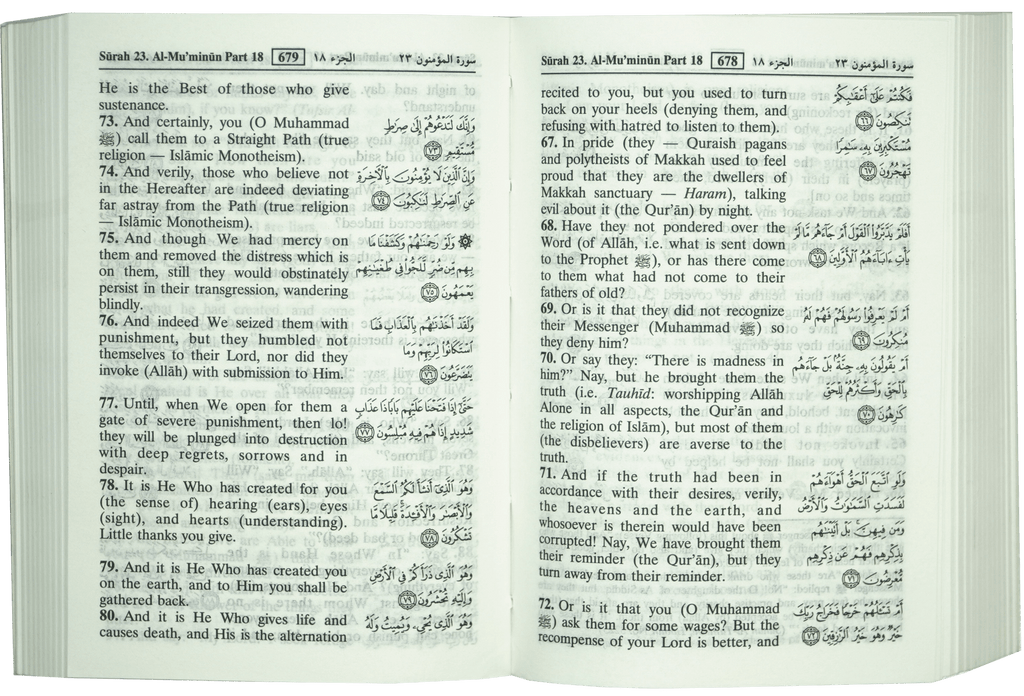 Sūrah 23. Al-Mu'minūn Part 18 678 الجزء ١٨ سورة المؤمنون ٢٣
recited to you, but you used to turn
back on your heels (denying them, and
refusing with hatred to listen to them).
67. In pride (they — Quraish pagans
and polytheists of Makkah used to feel
proud that they are the dwellers of
Makkah sanctuary — Haram), talking
evil about it (the Qur'ān) by night.
68. Have they not pondered over the
Word (of Allāh, i.e. what is sent down
to the Prophet ﷺ), or has there come
to them what had not come to their
fathers of old?
69. Or is it that they did not recognize
their Messenger (Muhammad ﷺ) so
they deny him?
70. Or say they: “There is madness in
him?” Nay, but he brought them the
truth (i.e. Tauhīd: worshipping Allāh
Alone in all aspects, the Qur'ān and
the religion of Islām), but most of them
(the disbelievers) are averse to the
truth.
71. And if the truth had been in
accordance with their desires, verily,
the heavens and the earth, and
whosoever is therein would have been
corrupted! Nay, We have brought them
their reminder (the Qur'ān), but they
turn away from their reminder.
72. Or is it that you (O Muhammad
ﷺ) ask them for some wages? But the
recompense of your Lord is better, and
فَكُنتُمْ عَلَىٰٓ أَعْقَٰبِكُمْ
تَنكِصُونَ ٦٦
مُسْتَكْبِرِينَ بِهِۦ سَٰمِرًا
تَهْجُرُونَ ٦٧
أَفَلَمْ يَدَّبَّرُوا۟ ٱلْقَوْلَ أَمْ جَآءَهُم مَّا لَمْ
يَأْتِ ءَابَآءَهُمُ ٱلْأَوَّلِينَ ٦٨
أَمْ لَمْ يَعْرِفُوا۟ رَسُولَهُمْ فَهُمْ لَهُۥ
مُنكِرُونَ ٦٩
أَمْ يَقُولُونَ بِهِۦ جِنَّةٌۢ بَلْ جَآءَهُم
بِٱلْحَقِّ وَأَكْثَرُهُمْ لِلْحَقِّ
كَٰرِهُونَ ٧٠
وَلَوِ ٱتَّبَعَ ٱلْحَقُّ أَهْوَآءَهُمْ
لَفَسَدَتِ ٱلسَّمَٰوَٰتُ وَٱلْأَرْضُ
وَمَن فِيهِنَّ بَلْ أَتَيْنَٰهُم
بِذِكْرِهِمْ فَهُمْ عَن ذِكْرِهِم
مُّعْرِضُونَ ٧١
أَمْ تَسْـَٔلُهُمْ خَرْجًا فَخَرَاجُ رَبِّكَ
خَيْرٌ وَهُوَ خَيْرُ ٱلرَّٰزِقِينَ ٧٢
Sūrah 23. Al-Mu'minūn Part 18 679 الجزء ١٨ سورة المؤمنون ٢٣
He is the Best of those who give
sustenance.
73. And certainly, you (O Muhammad
ﷺ) call them to a Straight Path (true
religion — Islāmic Monotheism).
74. And verily, those who believe not
in the Hereafter are indeed deviating
far astray from the Path (true religion
— Islāmic Monotheism).
75. And though We had mercy on
them and removed the distress which is
on them, still they would obstinately
persist in their transgression, wandering
blindly.
76. And indeed We seized them with
punishment, but they humbled not
themselves to their Lord, nor did they
invoke (Allāh) with submission to Him.
77. Until, when We open for them a
gate of severe punishment, then lo!
they will be plunged into destruction
with deep regrets, sorrows and in
despair.
78. It is He Who has created for you
(the sense of) hearing (ears), eyes
(sight), and hearts (understanding).
Little thanks you give.
79. And it is He Who has created you
on the earth, and to Him you shall be
gathered back.
80. And it is He Who gives life and
causes death, and His is the alternation
وَإِنَّكَ لَتَدْعُوهُمْ إِلَىٰ صِرَٰطٍ
مُّسْتَقِيمٍ ٧٣
وَإِنَّ ٱلَّذِينَ لَا يُؤْمِنُونَ بِٱلْءَاخِرَةِ
عَنِ ٱلصِّرَٰطِ لَنَٰكِبُونَ ٧٤
۞ وَلَوْ رَحِمْنَٰهُمْ وَكَشَفْنَا مَا
بِهِم مِّن ضُرٍّ لَّلَجُّوا۟ فِى طُغْيَٰنِهِمْ
يَعْمَهُونَ ٧٥
وَلَقَدْ أَخَذْنَٰهُم بِٱلْعَذَابِ فَمَا
ٱسْتَكَانُوا۟ لِرَبِّهِمْ وَمَا
يَتَضَرَّعُونَ ٧٦
حَتَّىٰٓ إِذَا فَتَحْنَا عَلَيْهِم بَابًا ذَا عَذَابٍ
شَدِيدٍ إِذَا هُمْ فِيهِ مُبْلِسُونَ ٧٧
وَهُوَ ٱلَّذِىٓ أَنشَأَ لَكُمُ ٱلسَّمْعَ
وَٱلْأَبْصَٰرَ وَٱلْأَفْـِٔدَةَ قَلِيلًا مَّا
تَشْكُرُونَ ٧٨
وَهُوَ ٱلَّذِى ذَرَأَكُمْ فِى ٱلْأَرْضِ
وَإِلَيْهِ تُحْشَرُونَ ٧٩
وَهُوَ ٱلَّذِى يُحْىِۦ وَيُمِيتُ وَلَهُ